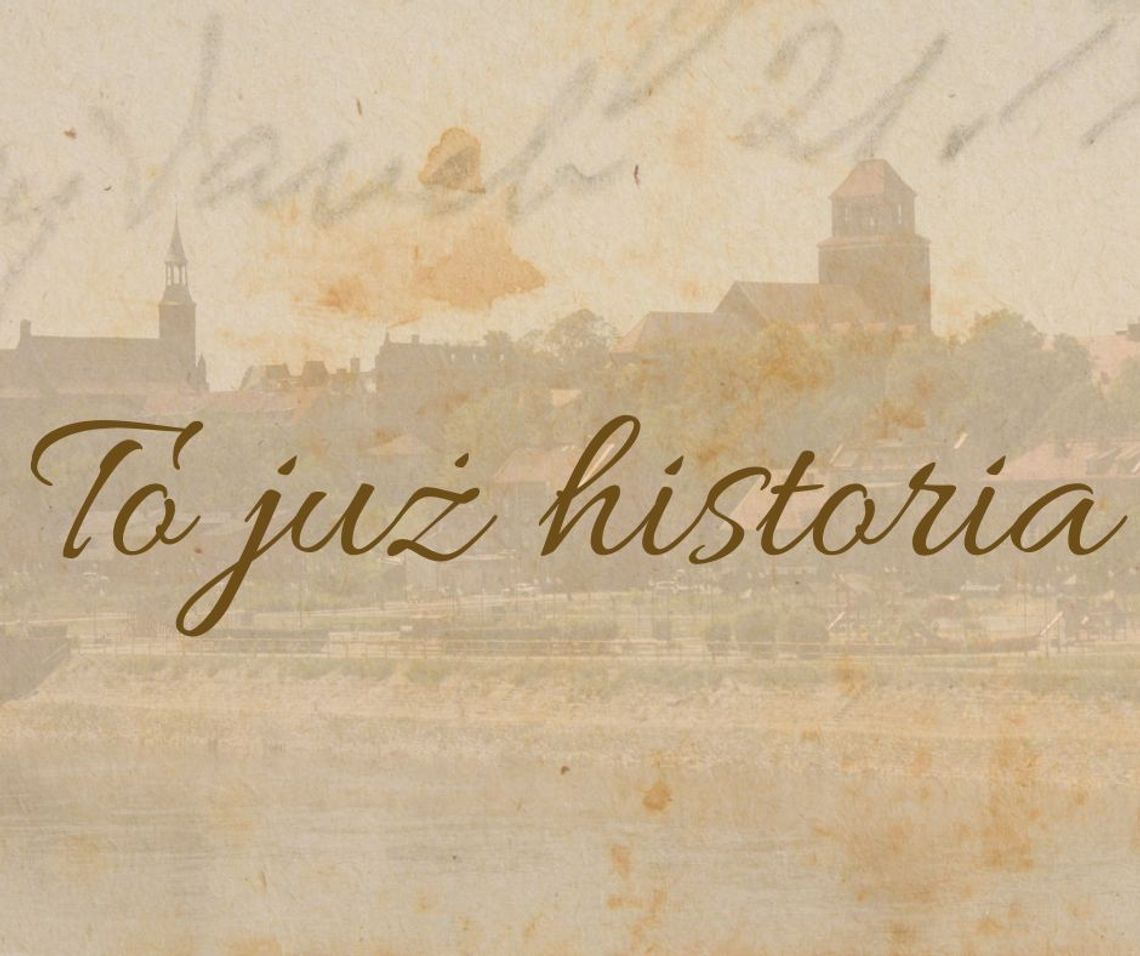 21.
To już historia